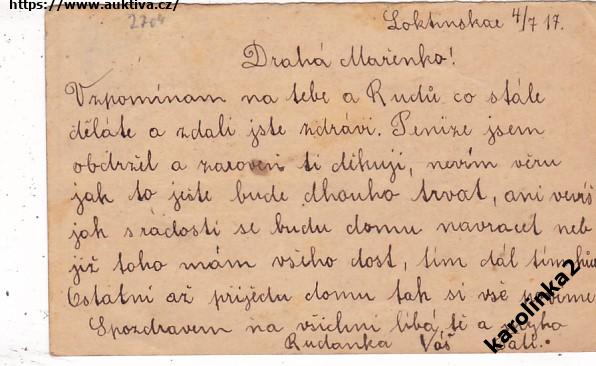 https://www.auktiva.cz/
2704
Loktinskae 4/7 17.
Drahá Mařenko!
Vzpomínam na tebe a Rudů co stále
děláte a zdali jste zdrávi. Peníze jsem
obdržel a zaroveň ti děkuji, nevím věru
jak to ješte bude dlouho trvat, ani veříš
jak s rádostí se budu domu navracet neb
již toho mám všeho dost, tím dál tím
Ostatní až přijedu domu tak si vše
Spozdravem na všichni libá, tě a
Rudanka Váš
karolinka2